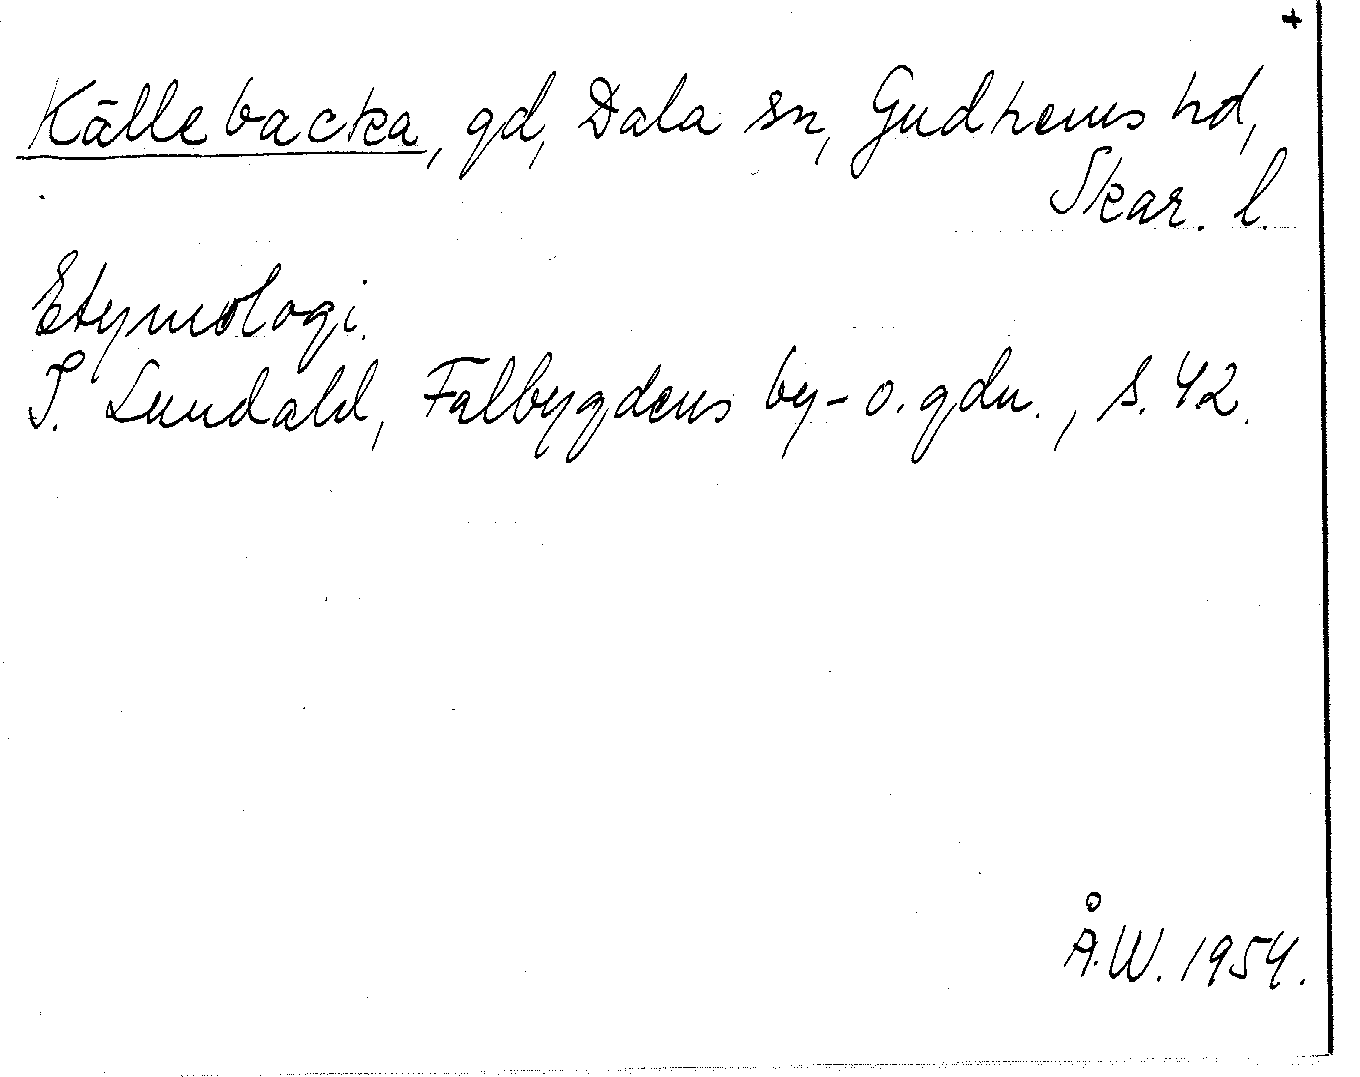 +
Källebacka, gd, Dala sn, Gudhems hd,
Skar. l.
Etymologi.
I. Lundahl, Falbygdens by- o. gdn., s. 42.
Å.W. 1954.